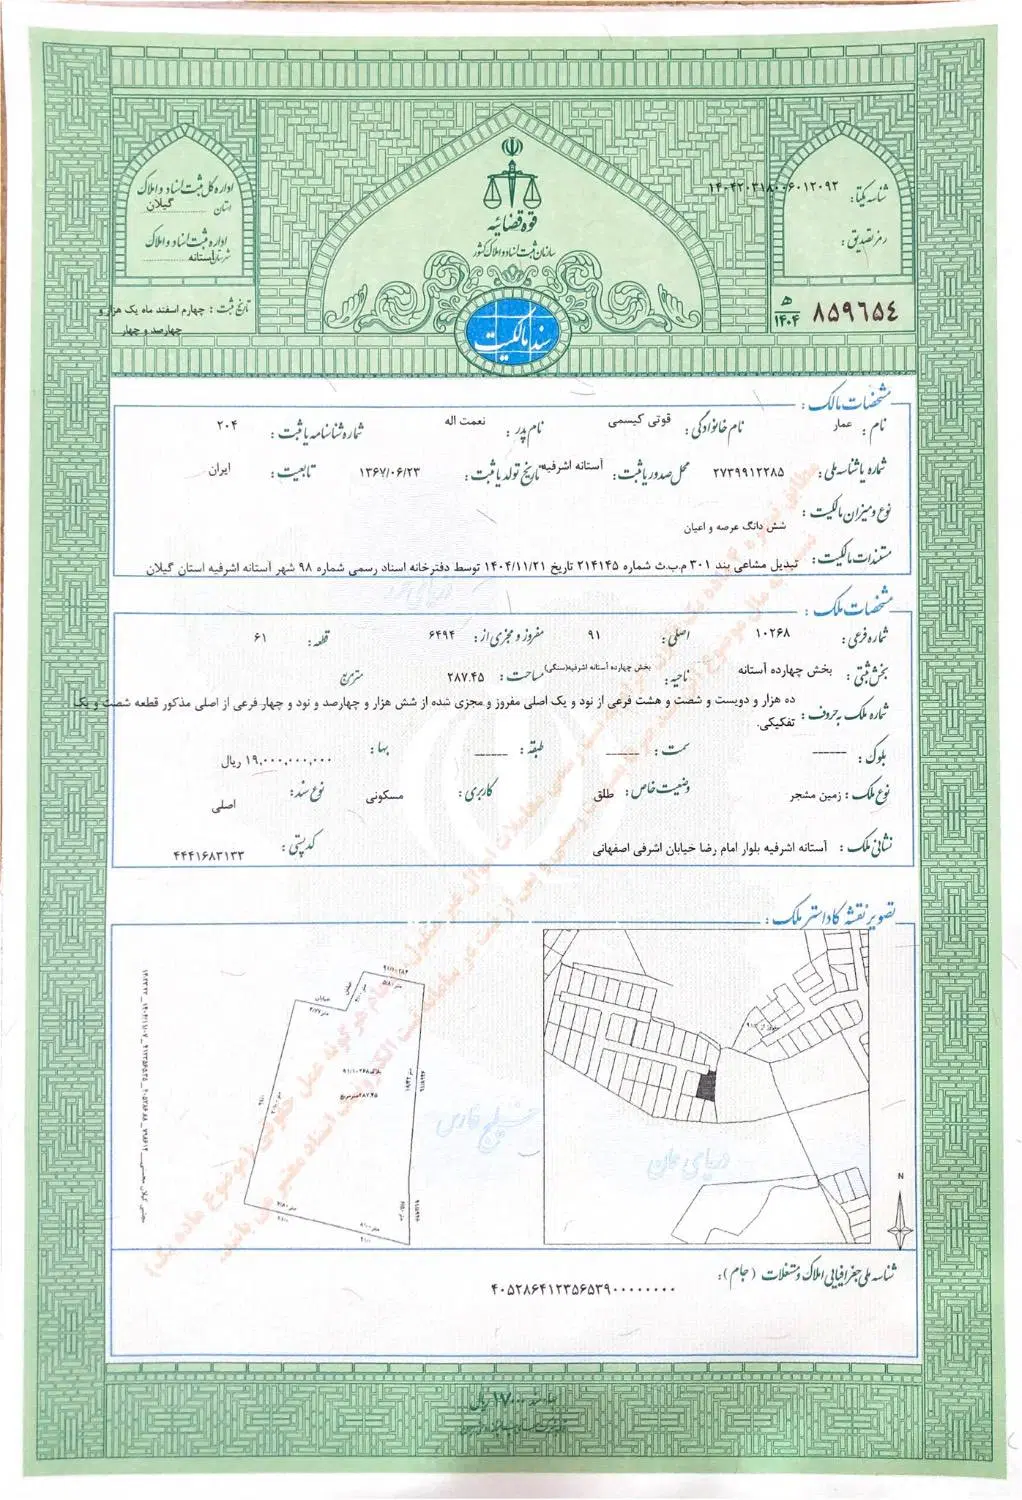 اداره کل ثبت اسناد و املاک
استان گیلان
اداره ثبت اسناد و املاک
شهرستان آستانه
تاریخ ثبت : چهارم اسفند ماه یک هزار و
چهارصد و چهار
قوه قضائیه
سازمان ثبت اسناد و املاک کشور
سند مالکیت
شناسه یکتا: ۱۴۰۴۲۰۳۱۸۰۰۶۰۱۲۰۹۲
رمز تصدیق :
۸۵۹۶۵٤ ه ۱۴۰۴
مشخصات مالک :
نام : عمار نام خانوادگی : قوتی کیسمی نام پدر : نعمت اله شماره شناسنامه یا ثبت : ۲۰۴
شماره یا شناسه ملی : ۲۷۳۹۹۱۲۲۸۵ محل صدور یا ثبت : آستانه اشرفیه تاریخ تولد یا ثبت : ۱۳۶۷/۰۶/۲۳ تابعیت : ایران
نوع و میزان مالکیت :
شش دانگ عرصه و اعیان
مستندات مالکیت : تبدیل مشاعی بند ۳۰۱ م.ب.ث شماره ۲۱۴۱۴۵ تاریخ ۱۴۰۴/۱۱/۲۱ توسط دفترخانه اسناد رسمی شماره ۹۸ شهر آستانه اشرفیه استان گیلان
مشخصات ملک :
شماره فرعی : ۱۰۲۶۸ اصلی : ۹۱ مفروز و مجزی از : ۶۴۹۴ قطعه : ۶۱
بخش ثبتی : بخش چهارده آستانه ناحیه : بخش چهارده آستانه اشرفیه(سنگی) مساحت : ۲۸۷.۴۵ متر مربع
شماره ملک به حروف : ده هزار و دویست و شصت و هشت فرعی از نود و یک اصلی مفروز و مجزی شده از شش هزار و چهارصد و نود و چهار فرعی از اصلی مذکور قطعه شصت و یک
تفکیکی.
بلوک : ------ سمت : ------ طبقه : ------ بها : ۱۹,۰۰۰,۰۰۰,۰۰۰ ریال
نوع ملک : زمین مشجر وضعیت خاص : طلق کاربری : مسکونی نوع سند : اصلی
نشانی ملک : آستانه اشرفیه بلوار امام رضا خیابان اشرفی اصفهانی کد پستی : ۴۴۴۱۶۸۳۱۳۳
تصویر نقشه کاداستر ملک :
خیابان
پلاک۹۱/۱۰۲۶۸
۲۸۷.۴۵مترمربع
N
خلیج فارس
دریای عمان
شناسه ملی جغرافیایی املاک و مستغلات (جام) :
۴۰۵۲۸۶۴۱۲۳۵۶۵۳۹۰۰۰۰۰۰۰۰